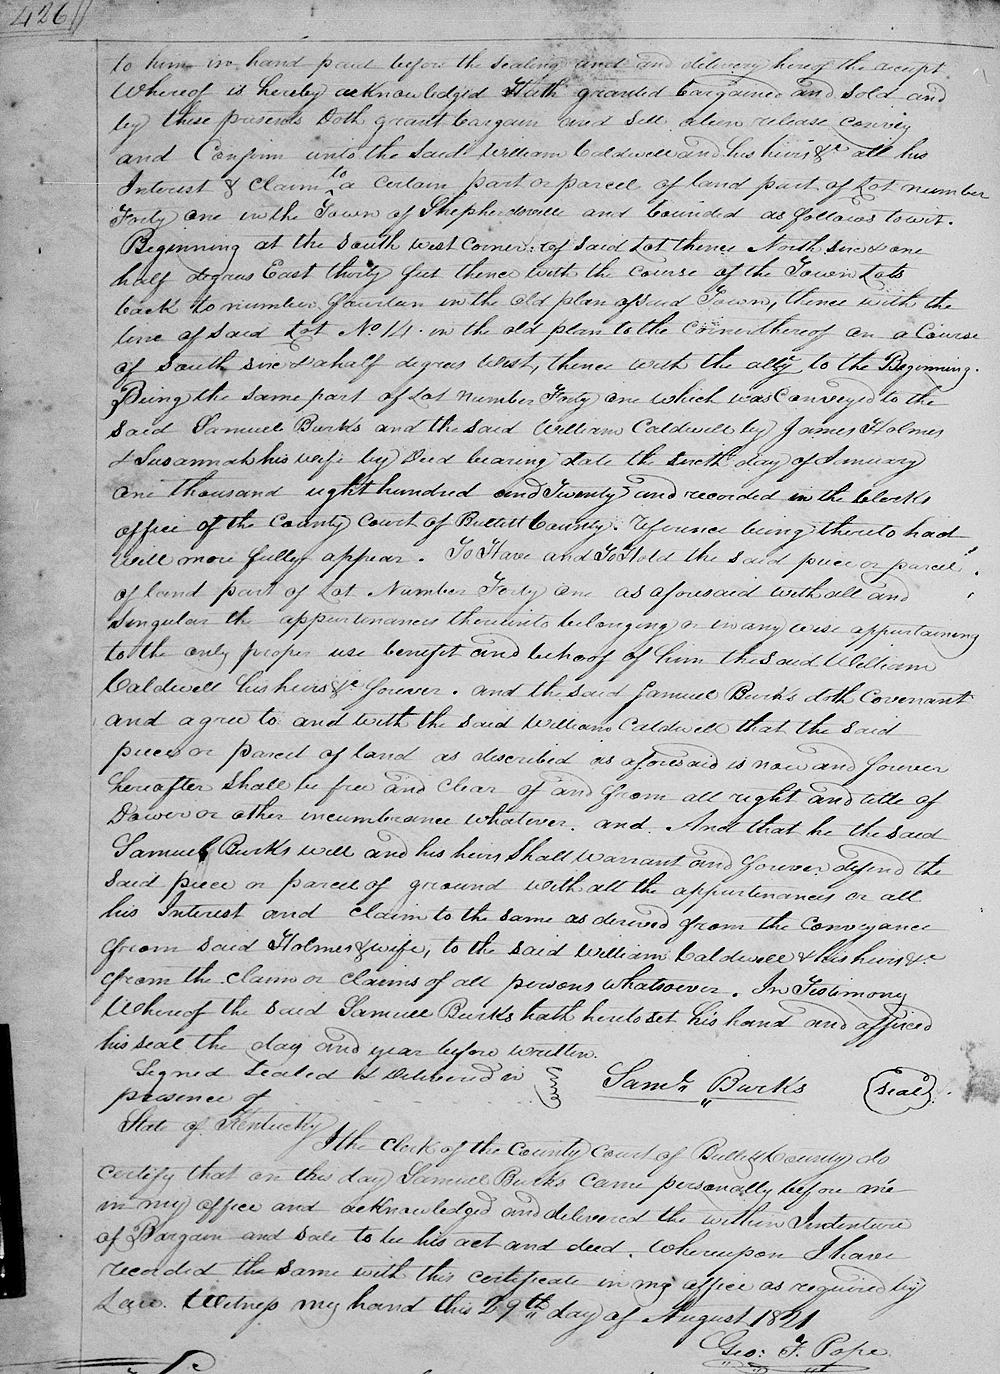 426
to him in hand paid before the sealing and and delivery hereof the receipt
Whereof is hereby acknowledged Hath granted bargained and sold and
by these presents Doth grant bargain and sell alien release convey
and Confirm unto the said William Caldwell and his heirs &c all his
Interest & Claim to a certain part or parcel of land part of Lot number
Forty one in the Town of Shepherdsville and bounded as follows towit.
Beginning at the South West Corner of said Lot thence North six & one
half degrees East thirty feet thence with the course of the Town Lots
back to number fourteen in the old plan of said Town, thence with the
line of said Lot No 14. in the old plan to the corner thereof on a Course
of South six & a half degrees West, thence with the ally to the Beginning.
Being the same part of Lot number Forty one which was Conveyed to the
said Samuel Burks and the said William Caldwell by James Holmes
& Susannah his wife by Deed bearing date the sixth day of January
one thousand eight hundred and Twenty and recorded in the Clerks
office of the County Court of Bullitt County. Reference being thereto had
will more fully appear. To Have and To Hold the said piece or parcel
of land part of Lot Number Forty one as aforesaid with all and
singular the appurtenances thereunto belonging or in any wise appurtaining
to the only proper use benefit and behoof of him the said William
Caldwell his heirs &c forever. and the said Samuel Burks doth Covenant
and agree to and with the said William Caldwell that the said
piece or parcel of land as described as aforesaid is now and forever
hereafter shall be free and clear of and from all right and title of
Dower or other incumbrance whatever. and. And that he the said
Samuel Burks will and his heirs shall warrant and forever defend the
said piece or parcel of ground with all the appurtenances or all
his Interest and claim to the same as derived from the Conveyance
from said Holmes & wife, to the said William Caldwell & his heirs &c
from the claim or claims of all persons whatsoever. In Testimony
Whereof the said Samuel Burks hath hereto set his hand and affixed
his seal the day and year before written.
Signed Sealed & Delivered in
presence of
Saml Burks (seal)
State of Kentucky
I the clerk of the County Court of Bullitt County do
certify that on this day Samuel Burks came personally before me
in my office and acknowledged and delivered the within Indenture
of Bargain and sale to be his act and deed. Whereupon I have
recorded the same with this certificate in my office as required by
Law. Witness my hand this 29th day of August 1821
Geo: F. Pope